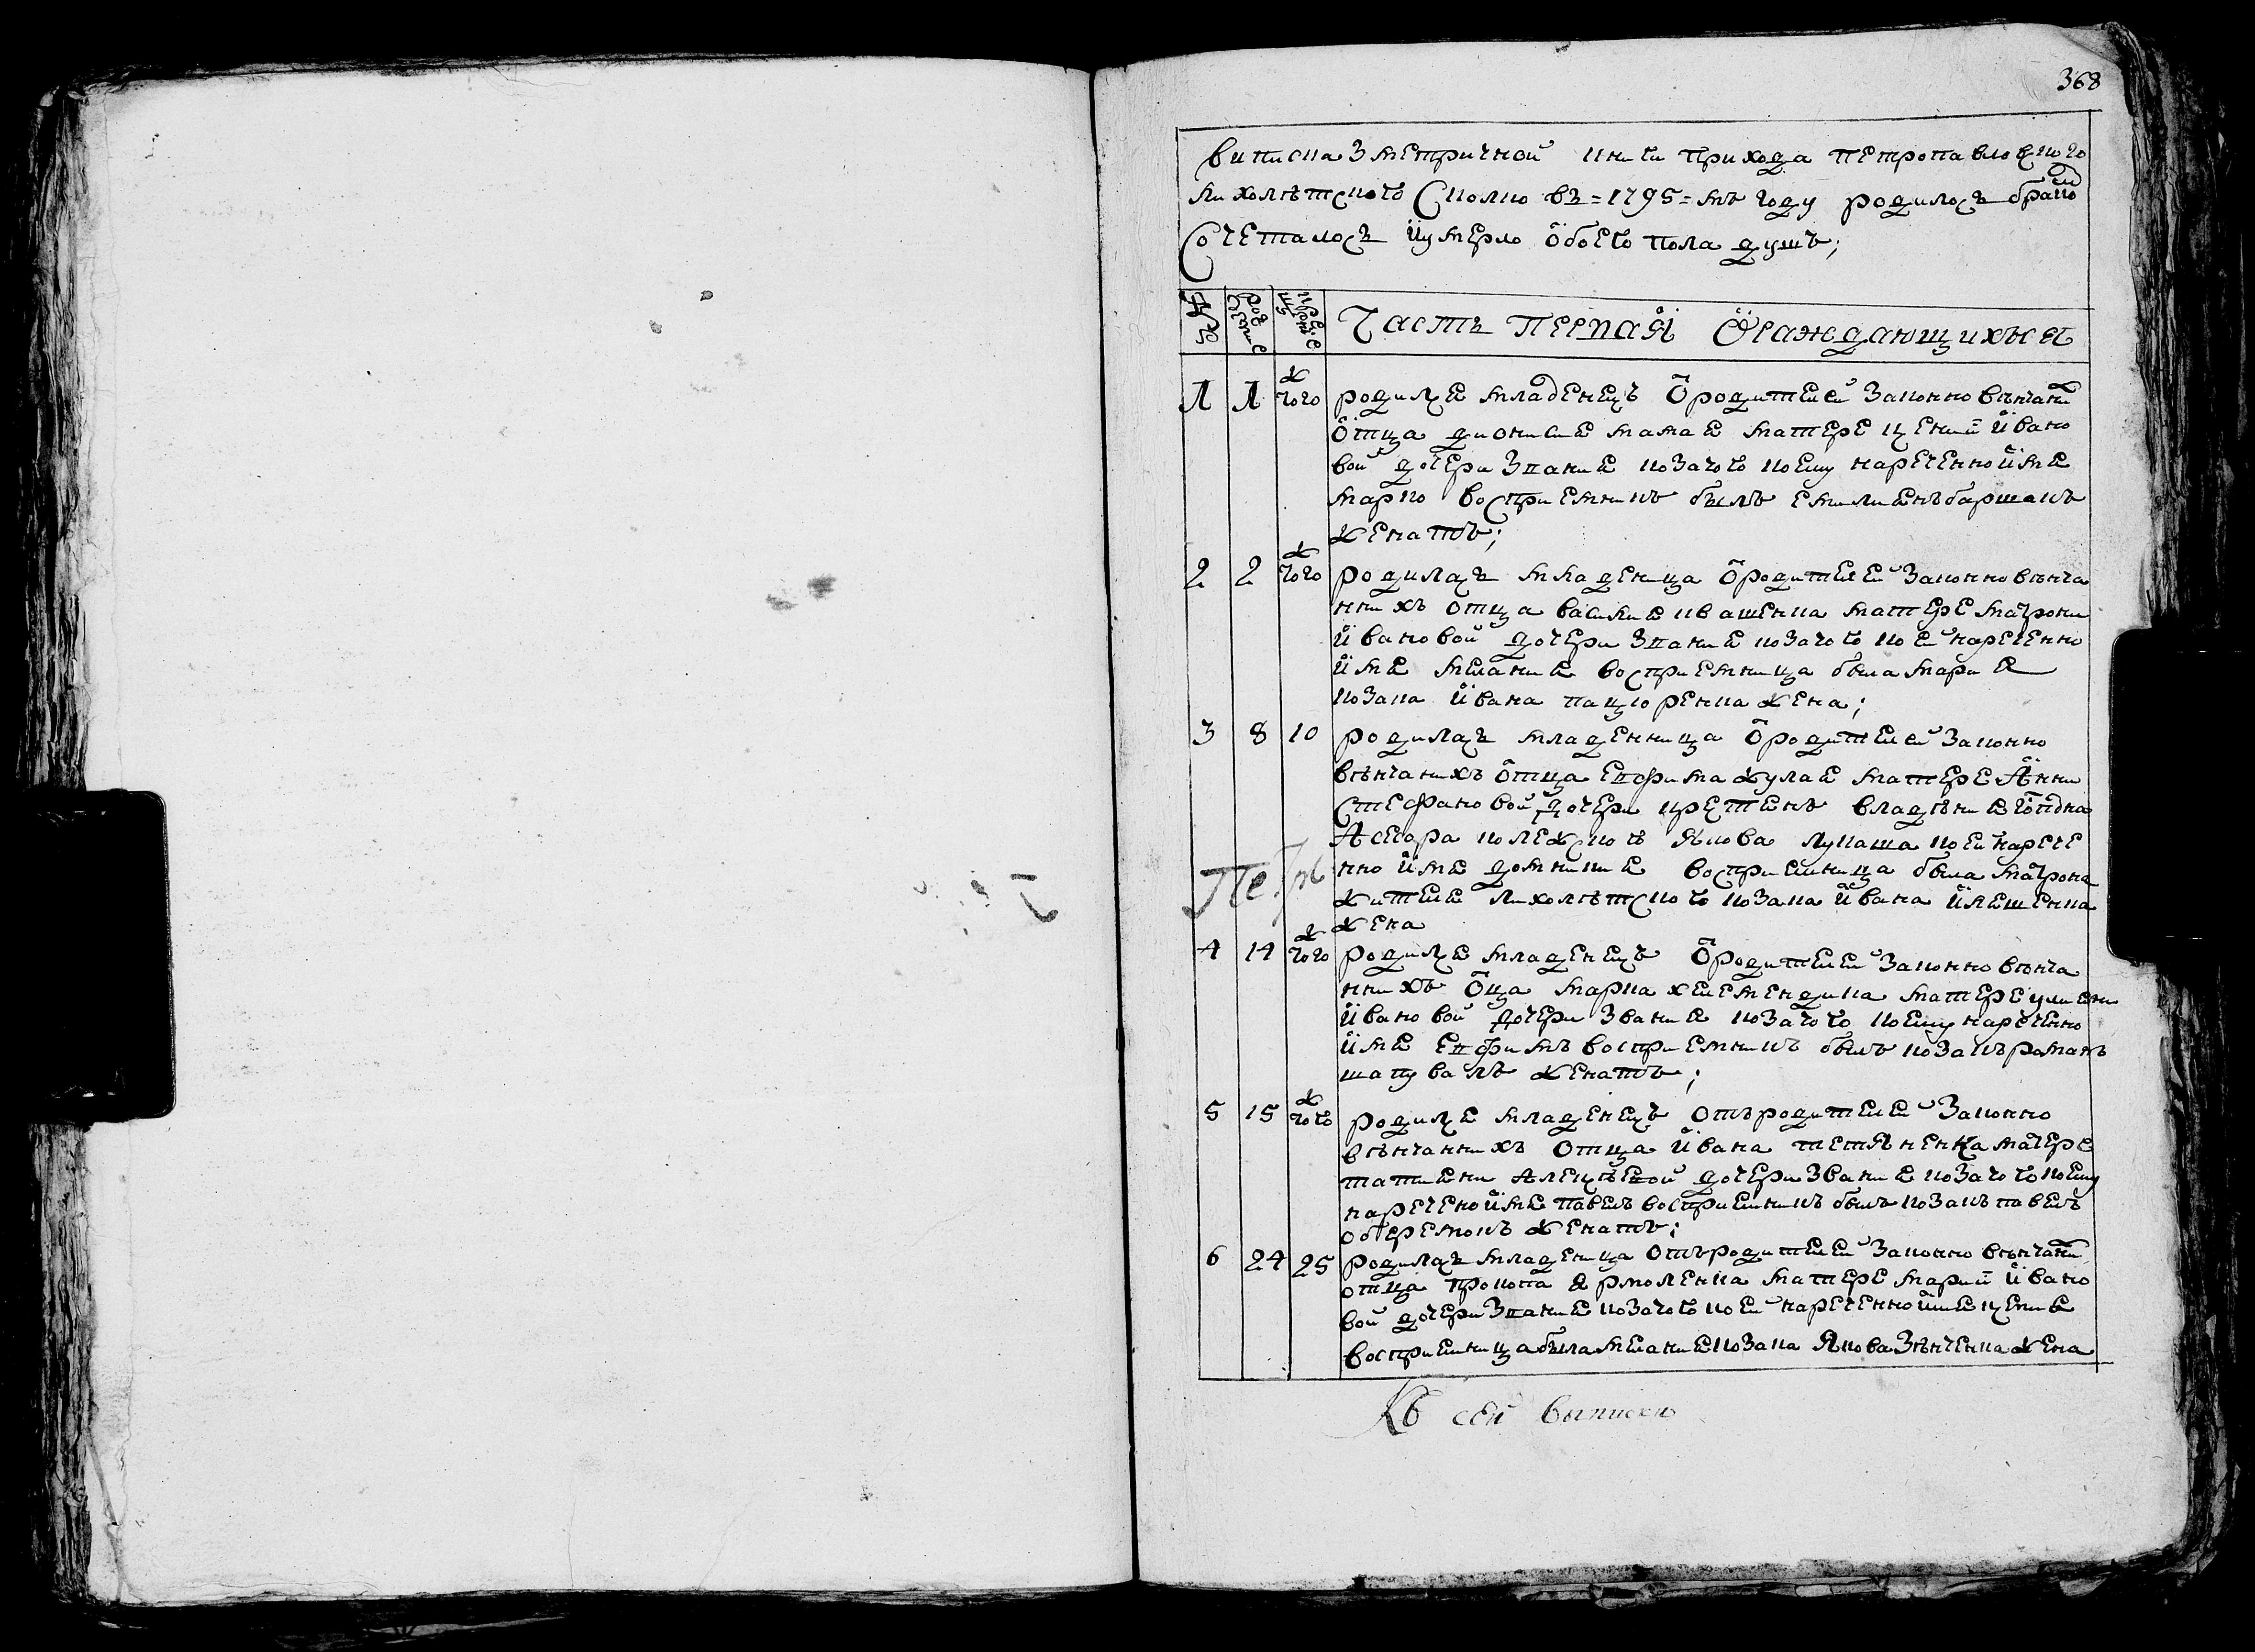 368
Виписка з метричной книги прихода петропавловского
лихолѣтского сколко въ = 1795 = мъ году родилось бракомъ
сочеталось и умерло обоего пола душъ;
Часть первая о раждающихъся
1 1 ж того родилсе младенецъ о родителей законно вѣнчаний
отца дионисие мамае матере ксении ивано
вой дочери звание козачого коему нареченно име
марко восприемникъ былъ емилиенъ баршакъ
женатъ;
2 2 ж того родилась младеница о родителей законно вѣнча
нихъ отца василие ивашенка матере матрони
ивановой дочери звание козачого коей нареченно
име мелание восприемница была марие
козака ивана пацюренка жена;
3 8 10 родилась младенница о родителей законно
вѣнчанихъ отца ефрима жулае матере анни
стефановой дочери крестенъ владѣние подна
асесора якова лукаша коей нарече
нно име домникие восприемница была матрона
жителе лихолѣтского козака ивана илешенка
жена
Петр
4 14 ж того родилсе младенецъ о родителей законно вѣнча
ннихъ оца марка хелемендика матере улиени
ивановой дочери звание козачого коему нареченно
име ефримъ восприемникъ былъ козакъ романъ
шаповалъ женатъ;
5 15 ж того родилсе младенецъ отъ родителей законно
вѣнчаннихъ отца ивана тетяненка матере
татиени алексѣевой дочери звание козачого коему
наречено име павелъ восприемникъ былъ козакъ павелъ
оберемокъ женатъ;
6 24 25 родилась младеница отъ родителей законно вѣнчаний
отца прокопа ермоленка матере марии ивано
вой дочери звание козачого коей нареченно име ксение
восприемница была мелание козака якова зѣнченка жена
Къ сей выписки